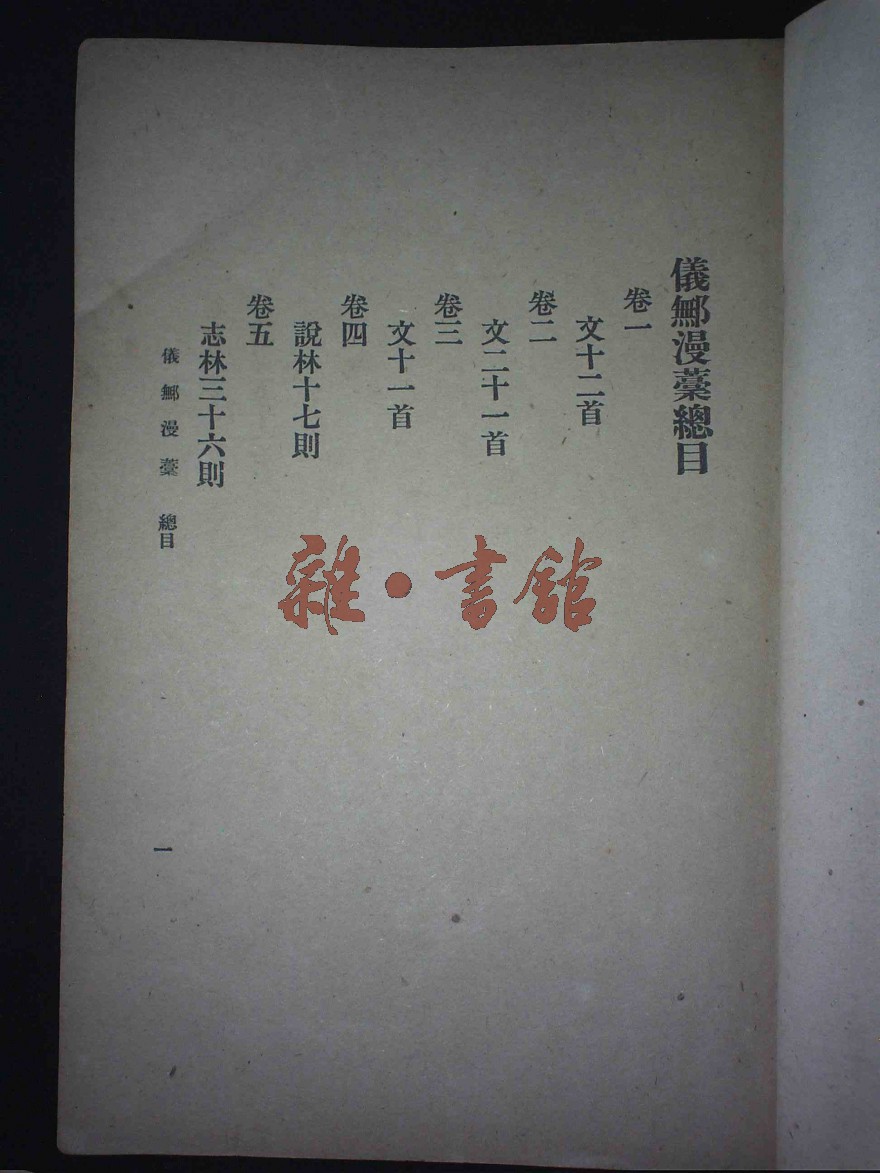 儀鄦漫藁總目
卷一
文十二首
卷二
文二十一首
卷三
文十一首
卷四
說林十七則
卷五
志林三十六則
儀鄦漫藁 總目
一
雜·書館